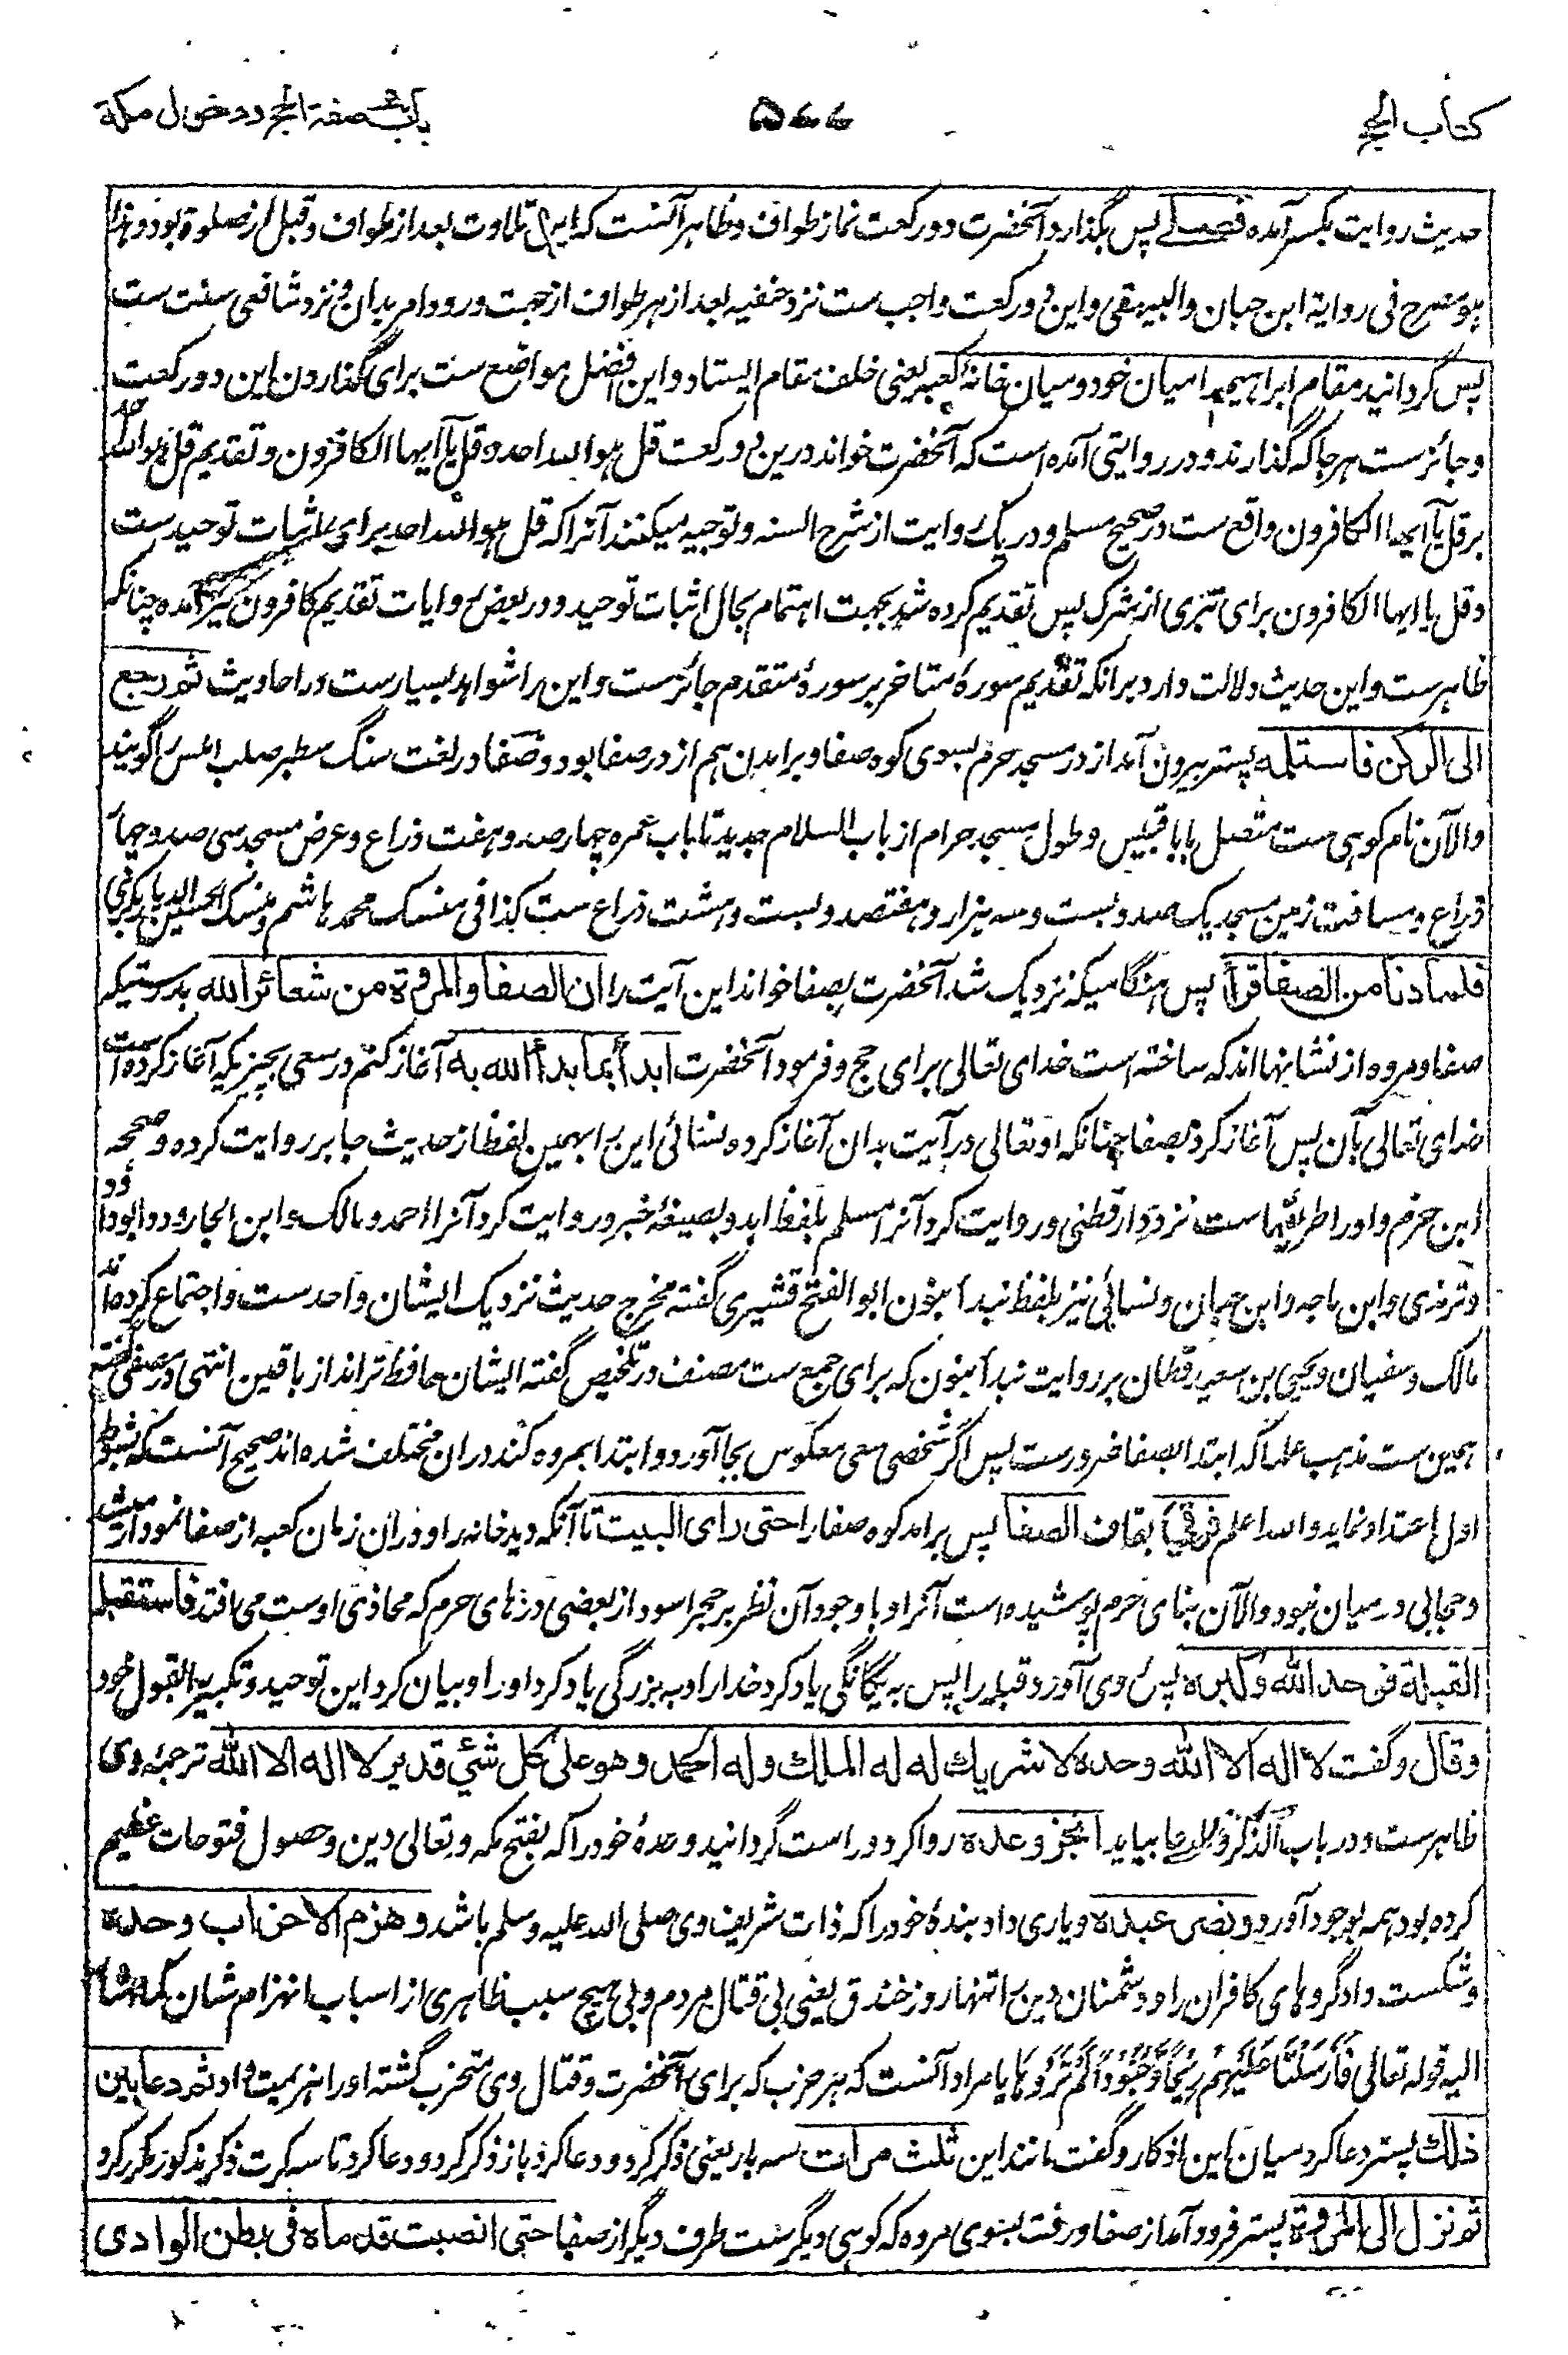 کتاب الحج
۵۷۷
باب صفة الحج ودخول مکة
حدیث روایت بکسر آمده فصلی پس بگذارد آنحضرت دو رکعت نماز طواف وظاهر آنست که این تلاوت بعد از طواف وقبل از صلوة بود وهذا
هو مصرح فی روایة ابن حبان والبیهقی واین دو رکعت واجب ست نزد حنفیه بعد از هر طواف از جهت ورود امر بدان ونزد شافعی سنت ست
پس گردانید مقام ابراهیم را میان خود ومیان خانه کعبه یعنی خلف مقام ایستاد واین افضل مواضع ست برای گذاردن این دو رکعت
وجائز ست هر جا که گذارند ودر روایتی آمده است که آنحضرت خواند درین دو رکعت قل هو الله احد وقل یا أیها الکافرون وتقدیم قل هو الله احد
بر قل یا أیها الکافرون واقع ست در صحیح مسلم ودر یک روایت از شرح السنه وتوجیه میکنند آنرا که قل هو الله احد برای اثبات توحید ست
وقل یا ایها الکافرون برای تبری از شرک پس تقدیم کرده شد بجهت اهتمام بحال اثبات توحید ودر بعض روایات تقدیم کافرون نیز آمده چنانکه
ظاهر ست واین حدیث دلالت دارد برانکه تقدیم سورۀ متاخر بر سورۀ متقدم جائز ست واین را شواهد بسیار ست در احادیث ثم رجع
الی الرکن فاستلمه پستر بیرون آمد از در مسجد حرم بسوی کوه صفا وبرامدن هم از در صفا بود وصفا در لغت سنگ سطبر صلب املس را گویند
والآن نام کوهی ست متصل بابا قبیس وطول مسجد حرام از باب السلام جدید تا باب عمره چهار صد وهفت ذراع وعرض مسجد سی صد وچهار
ذراع ومسافت زمین مسجد یک صد وبست وسه هزار وهفتصد وبست وهشت ذراع ست کذا فی منسک محمد هاشم ومنسک الحسین الدیاربکری
فلما دنا من الصفا قرأ پس هنگامیکه نزدیک شد آنحضرت بصفا خواند این آیت را ان الصفا والمروة من شعائر الله بدرستیکه
صفا ومروه از نشانیها اند که ساخته است خدای تعالی برای حج وفرمود آنحضرت ابدأ بما بدأ الله به آغاز کنم در سعی بچیزیکه آغاز کرده است
خدای تعالی بآن پس آغاز کرد بصفا چنانکه او تعالی در آیت بدان آغاز کرده نسائی این را بهمین لفظ از حدیث جابر روایت کرده وصححه
ابن حزم واو را طریقها ست نزد دارقطنی وروایت کرد آنرا مسلم بلفظ ابدء بصیغۀ خبر وروایت کرد آنرا احمد ومالک وابن الجارود وابوداؤد
وترمذی وابن ماجه وابن حبان ونسائی نیز بلفظ نبدأ بنون ابو الفتح قشیری گفته مخرج حدیث نزدیک ایشان واحد ست واجتماع کرده اند
مالک وسفیان ویحیی بن سعید قطان بر روایت نبدأ بنون که برای جمع ست مصنف در تلخیص گفته ایشان حافظ تر اند از باقین انتهی ودر مصفی گفته
همین ست مذهب علما که ابتدا بصفا ضرور ست پس اگر شخصی سعی معکوس بجا آورد وابتدا بمروه کند دران مختلف شده اند صحیح آنست که بشوط
اول اعتداد ننماید والله اعلم فرقی بقاف الصفا پس برامد کوه صفا را حتی رأی البیت تا آنکه دید خانه را ودران زمان کعبه از صفا نمودار میشد
وحجابی درمیان نبود والآن بنای حرم پوشیده است آنرا وبا وجود آن نظر بر حجر اسود از بعضی درزهای حرم که محاذی اوست می افتد فاستقبل
القبلة فوحد الله وکبره پس روی آورد قبله را پس به یگانگی یاد کرد خدا را وبه بزرگی یاد کرد او را وبیان کرد این توحید وتکبیر را بقول خود
وقال وگفت لا اله الا الله وحده لا شریك له له الملك وله الحمد وهو علی کل شئ قدیر لا اله الا الله ترجمه وی
ظاهر ست ودر باب الذکر والدعا بیاید انجز وعده روا کرد وراست گردانید وعدۀ خود را که بفتح مکه وتعالی دین وحصول فتوحات عظیم
کرده بود همه بوجود آورد ونصر عبده ویاری داد بندۀ خود را که ذات شریف وی صلی الله علیه وسلم باشد وهزم الاحزاب وحده
وشکست داد گروهای کافران را ودشمنان دین را تنها روز خندق یعنی بی قتال مردم وبی هیچ سبب ظاهری از اسباب انهزام شان کما اشار
الیه قوله تعالی فَأَرْسَلْنَا عَلَیْهِمْ رِیْحًا وَّجُنُوْدًا لَّمْ تَرَوْهَا یا مراد آنست که هر حزب که برای آنحضرت وقتال وی متحزب گشته او را هزیمت داد ثم دعا بین
ذلك پستر دعا کرد میان این اذکار وگفت مانند این ثلث مرات سه بار یعنی ذکر کرد ودعا کرد باز ذکر کرد ودعا کرد تا سه کرت ذکر مذکور مکرر کرد
ثم نزل الی المروة پستر فرود آمد از صفا ورفت بسوی مروه که کوهی دیگر ست طرف دیگر از صفا حتی انصبت قدماه فی بطن الوادی